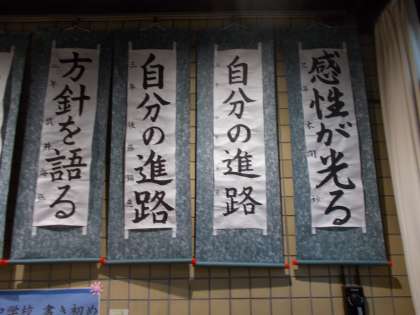 感性が光る
自分の進路
自分の進路
方針を語る
書き初め